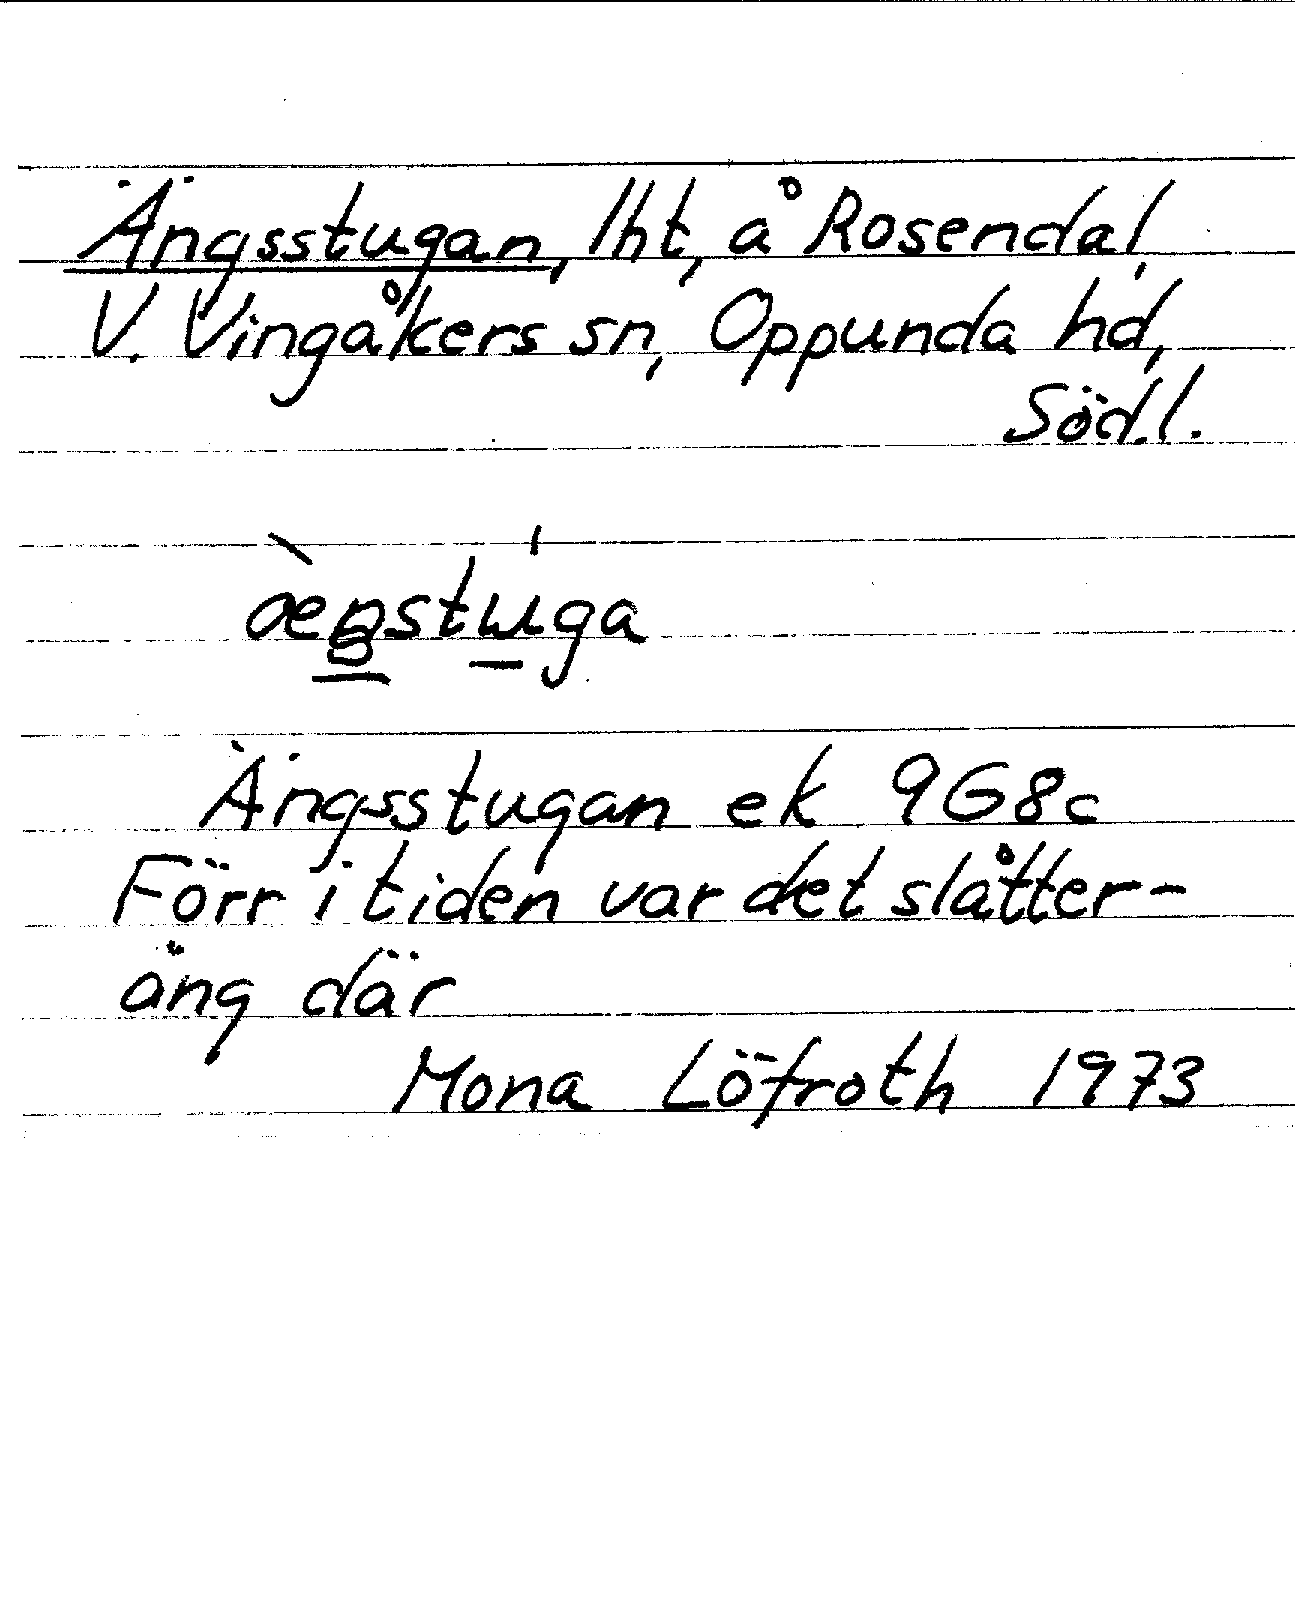 Ängsstugan, lht, å Rosendal,
V. Vingåkers sn, Oppunda hd,
Södl.
æ̀ŋstu̱ˈga
Ängsstugan ek 9G8c
Förr i tiden var det slåtter-
äng där
Mona Löfroth 1973